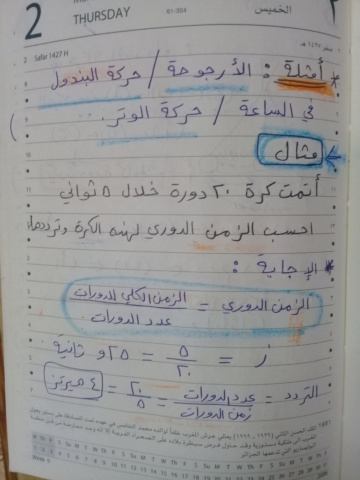 2
THURSDAY
61-304
الخميس
٢
2 Safar 1427 H
صفر ١٤٢٧ هـ
* أمثلة : الأرجوحة / حركة البندول
في الساعة / حركة الوتر .
مثال
أتمت كرة ٢٠ دورة خلال ٥ ثواني
احسب الزمن الدوري لهذه الكرة وترددها.
* الإجابة :
الزمن الدوري = الزمن الكلي للدورات / عدد الدورات
ز = ٥ / ٢٠ = ٢٥و ثانية
التردد = عدد الدورات / زمن الدورات = ٢٠ / ٥ = ٤ هيرتز
1991
Week 9